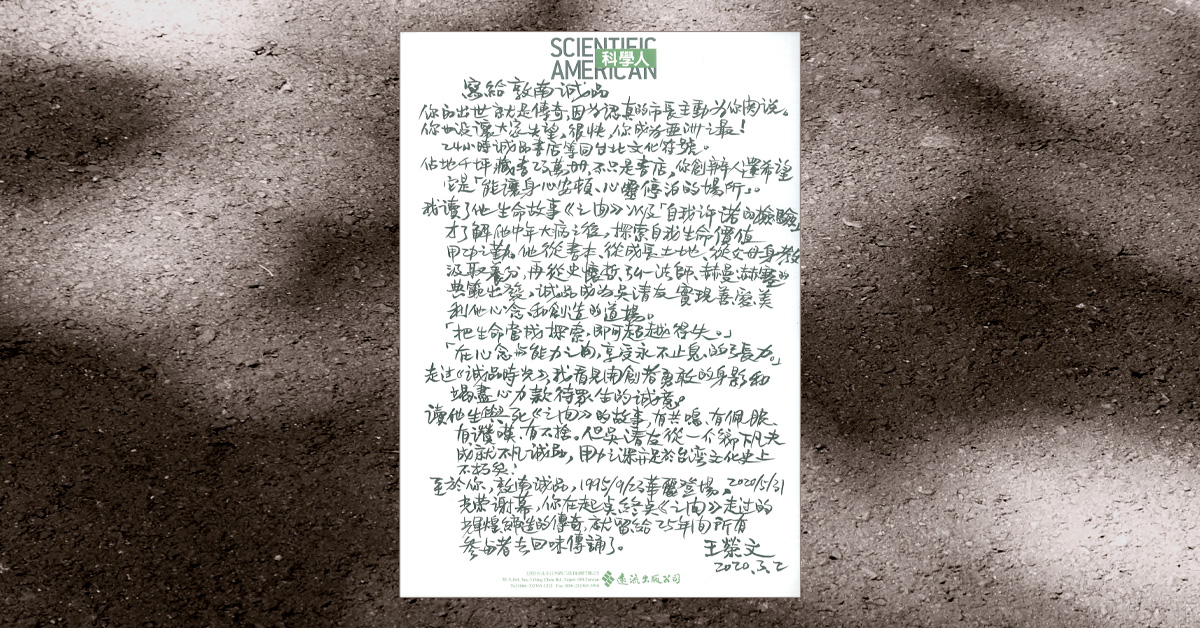 SCIENTIFIC
科學人
AMERICAN
寫給敦南誠品
你的出世就是傳奇,因為認真的市長主動為你關說。
你也沒讓大家失望,很快,你成為亞洲之最!
24小時誠品書店等同台北文化符號。
佔地千坪藏書25萬冊,不只是書店,你創辦人還希望
它是「能讓身心安頓、心靈停泊的場所」。
我讀了他生命故事《之間》以及「自我許諾的檢驗」
才了解他中年大病之後,探索自我生命價值
用功之勤。他從書本、從成長土地、從父母身教
汲取養分,再從史懷哲、弘一法師、赫曼·赫塞的
典範出發,誠品成為吳清友實現善、愛、美
利他心念和創造的道場。
「把生命當成探索,即可超越得失。」
「在心念與能力之間,享受永不止息的張力。」
走过《誠品時光》,我看見開創者勇敢的身影和
竭盡心力款待眾生的誠意。
讀他生與死《之間》的故事,有共鳴、有佩服、
有讚嘆、有不捨。但吳清友從一介鄉下凡夫
成就不凡誠品,用力之深亦足於台湾文化史上
不朽矣!
至於你,敦南誠品,1995/9/23華麗登場,2020/5/31
光榮謝幕,你在起點終點《之間》走过的
輝煌締造的傳奇,就留給25年间所有
參與者去回味傳誦了。
王榮文
2020.3.2
遠流出版公司